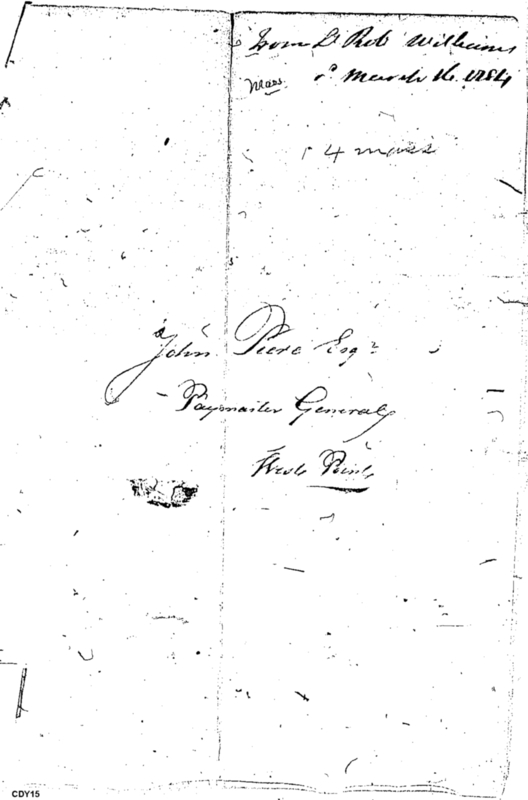 from Lt Robt Williams
Mass. March 16. 1784
4 mass
John Pierce Esqr
Paymaster General
West Point
CDY15